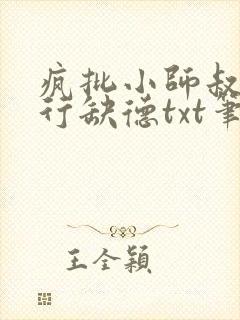 疯批小师叔
行缺德txt笔
王全颖